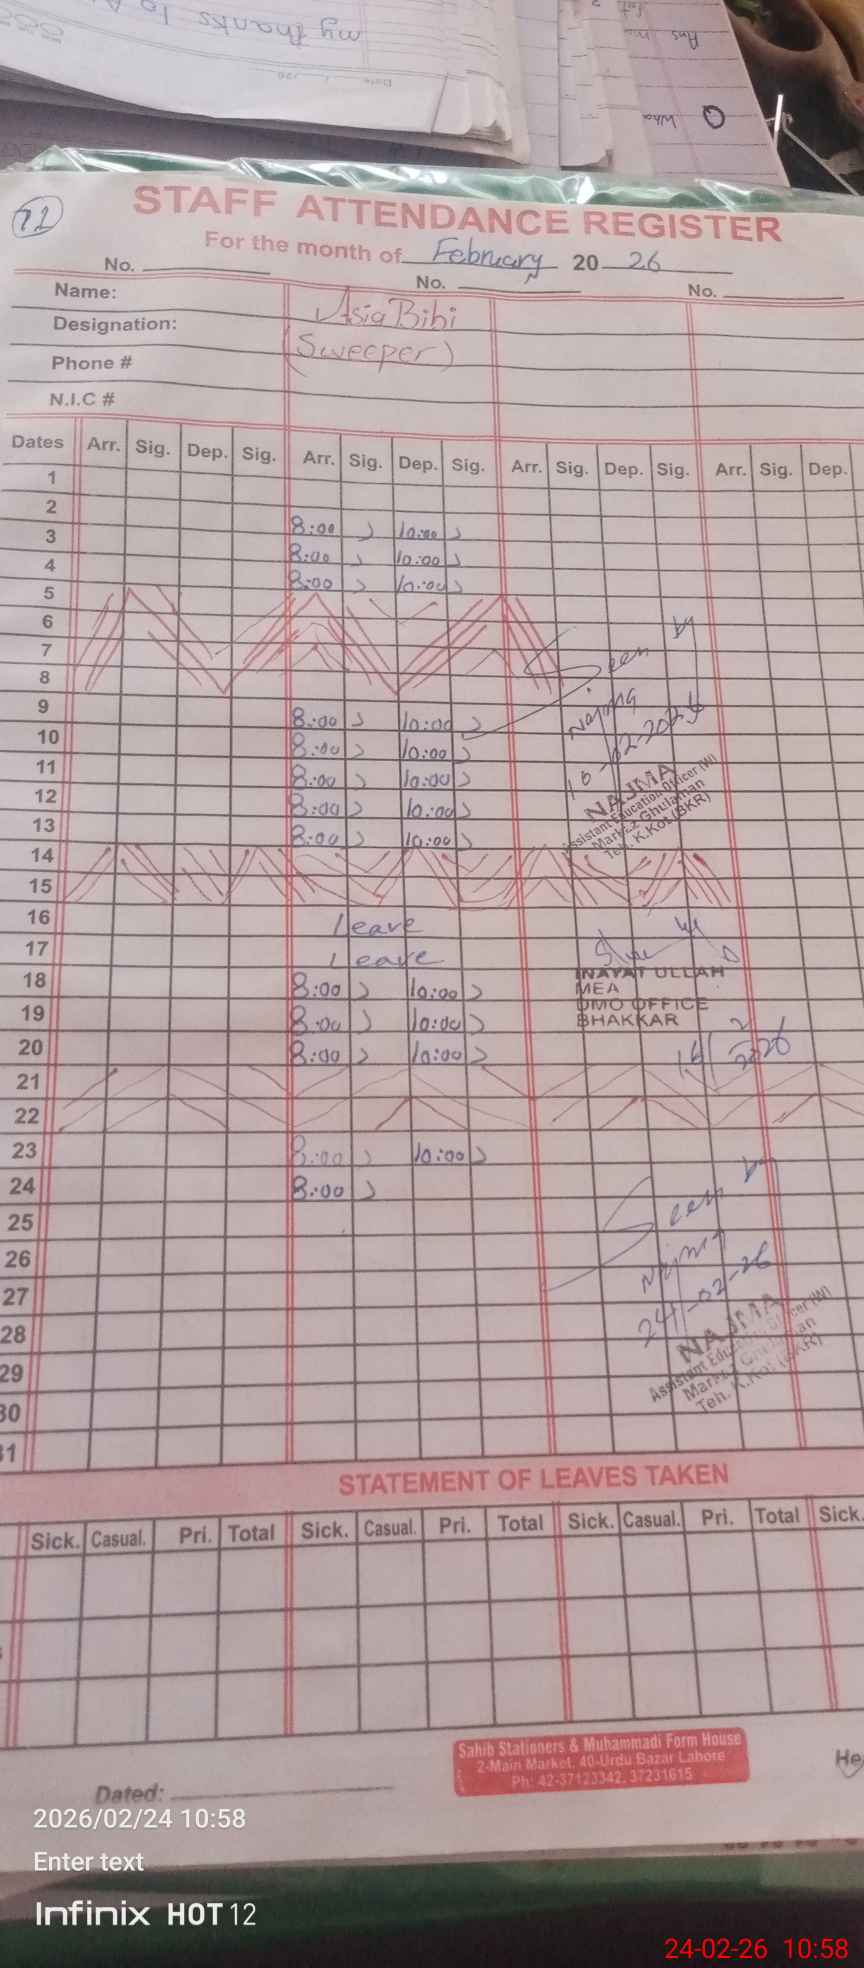 my thanks To
Date
Ans
Q Wha
71
STAFF ATTENDANCE REGISTER
For the month of February 20 26
No. No. No.
Name: Asia Bibi
Designation: (Sweeper)
Phone #
N.I.C #
Dates Arr. Sig. Dep. Sig. Arr. Sig. Dep. Sig. Arr. Sig. Dep. Sig. Arr. Sig. Dep.
1
2
3 8:00 10:00
4 8:00 10:00
5 8:00 10:00
6
7
8
9 8:00 10:00
10 8:00 10:00
11 8:00 10:00
12 8:00 10:00
13 8:00 10:00
Seen by
Najma
16-02-2026
NAJMA
Assistant Education Officer (W)
Markez Ghulaman
Teh. K.Kot (BKR)
14
15
16 Leave
17 Leave
18 8:00 10:00
19 8:00 10:00
20 8:00 10:00
INAYAT ULLAH
MEA
DMO OFFICE
BHAKKAR
21
22
23 8:00 10:00
24 8:00
25
26
27
28
29
30
31
Seen by
Najma
24-02-26
NAJMA
Assistant Education Officer (W)
Markez Ghulaman
Teh. K.Kot (BKR)
STATEMENT OF LEAVES TAKEN
Sick. Casual. Pri. Total Sick. Casual. Pri. Total Sick. Casual. Pri. Total Sick.
Sahib Stationers & Muhammadi Form House
2-Main Market, 40-Urdu Bazar Lahore
Ph: 42-37123342, 37231615
He
Dated:
2026/02/24 10:58
Enter text
Infinix HOT 12
24-02-26 10:58